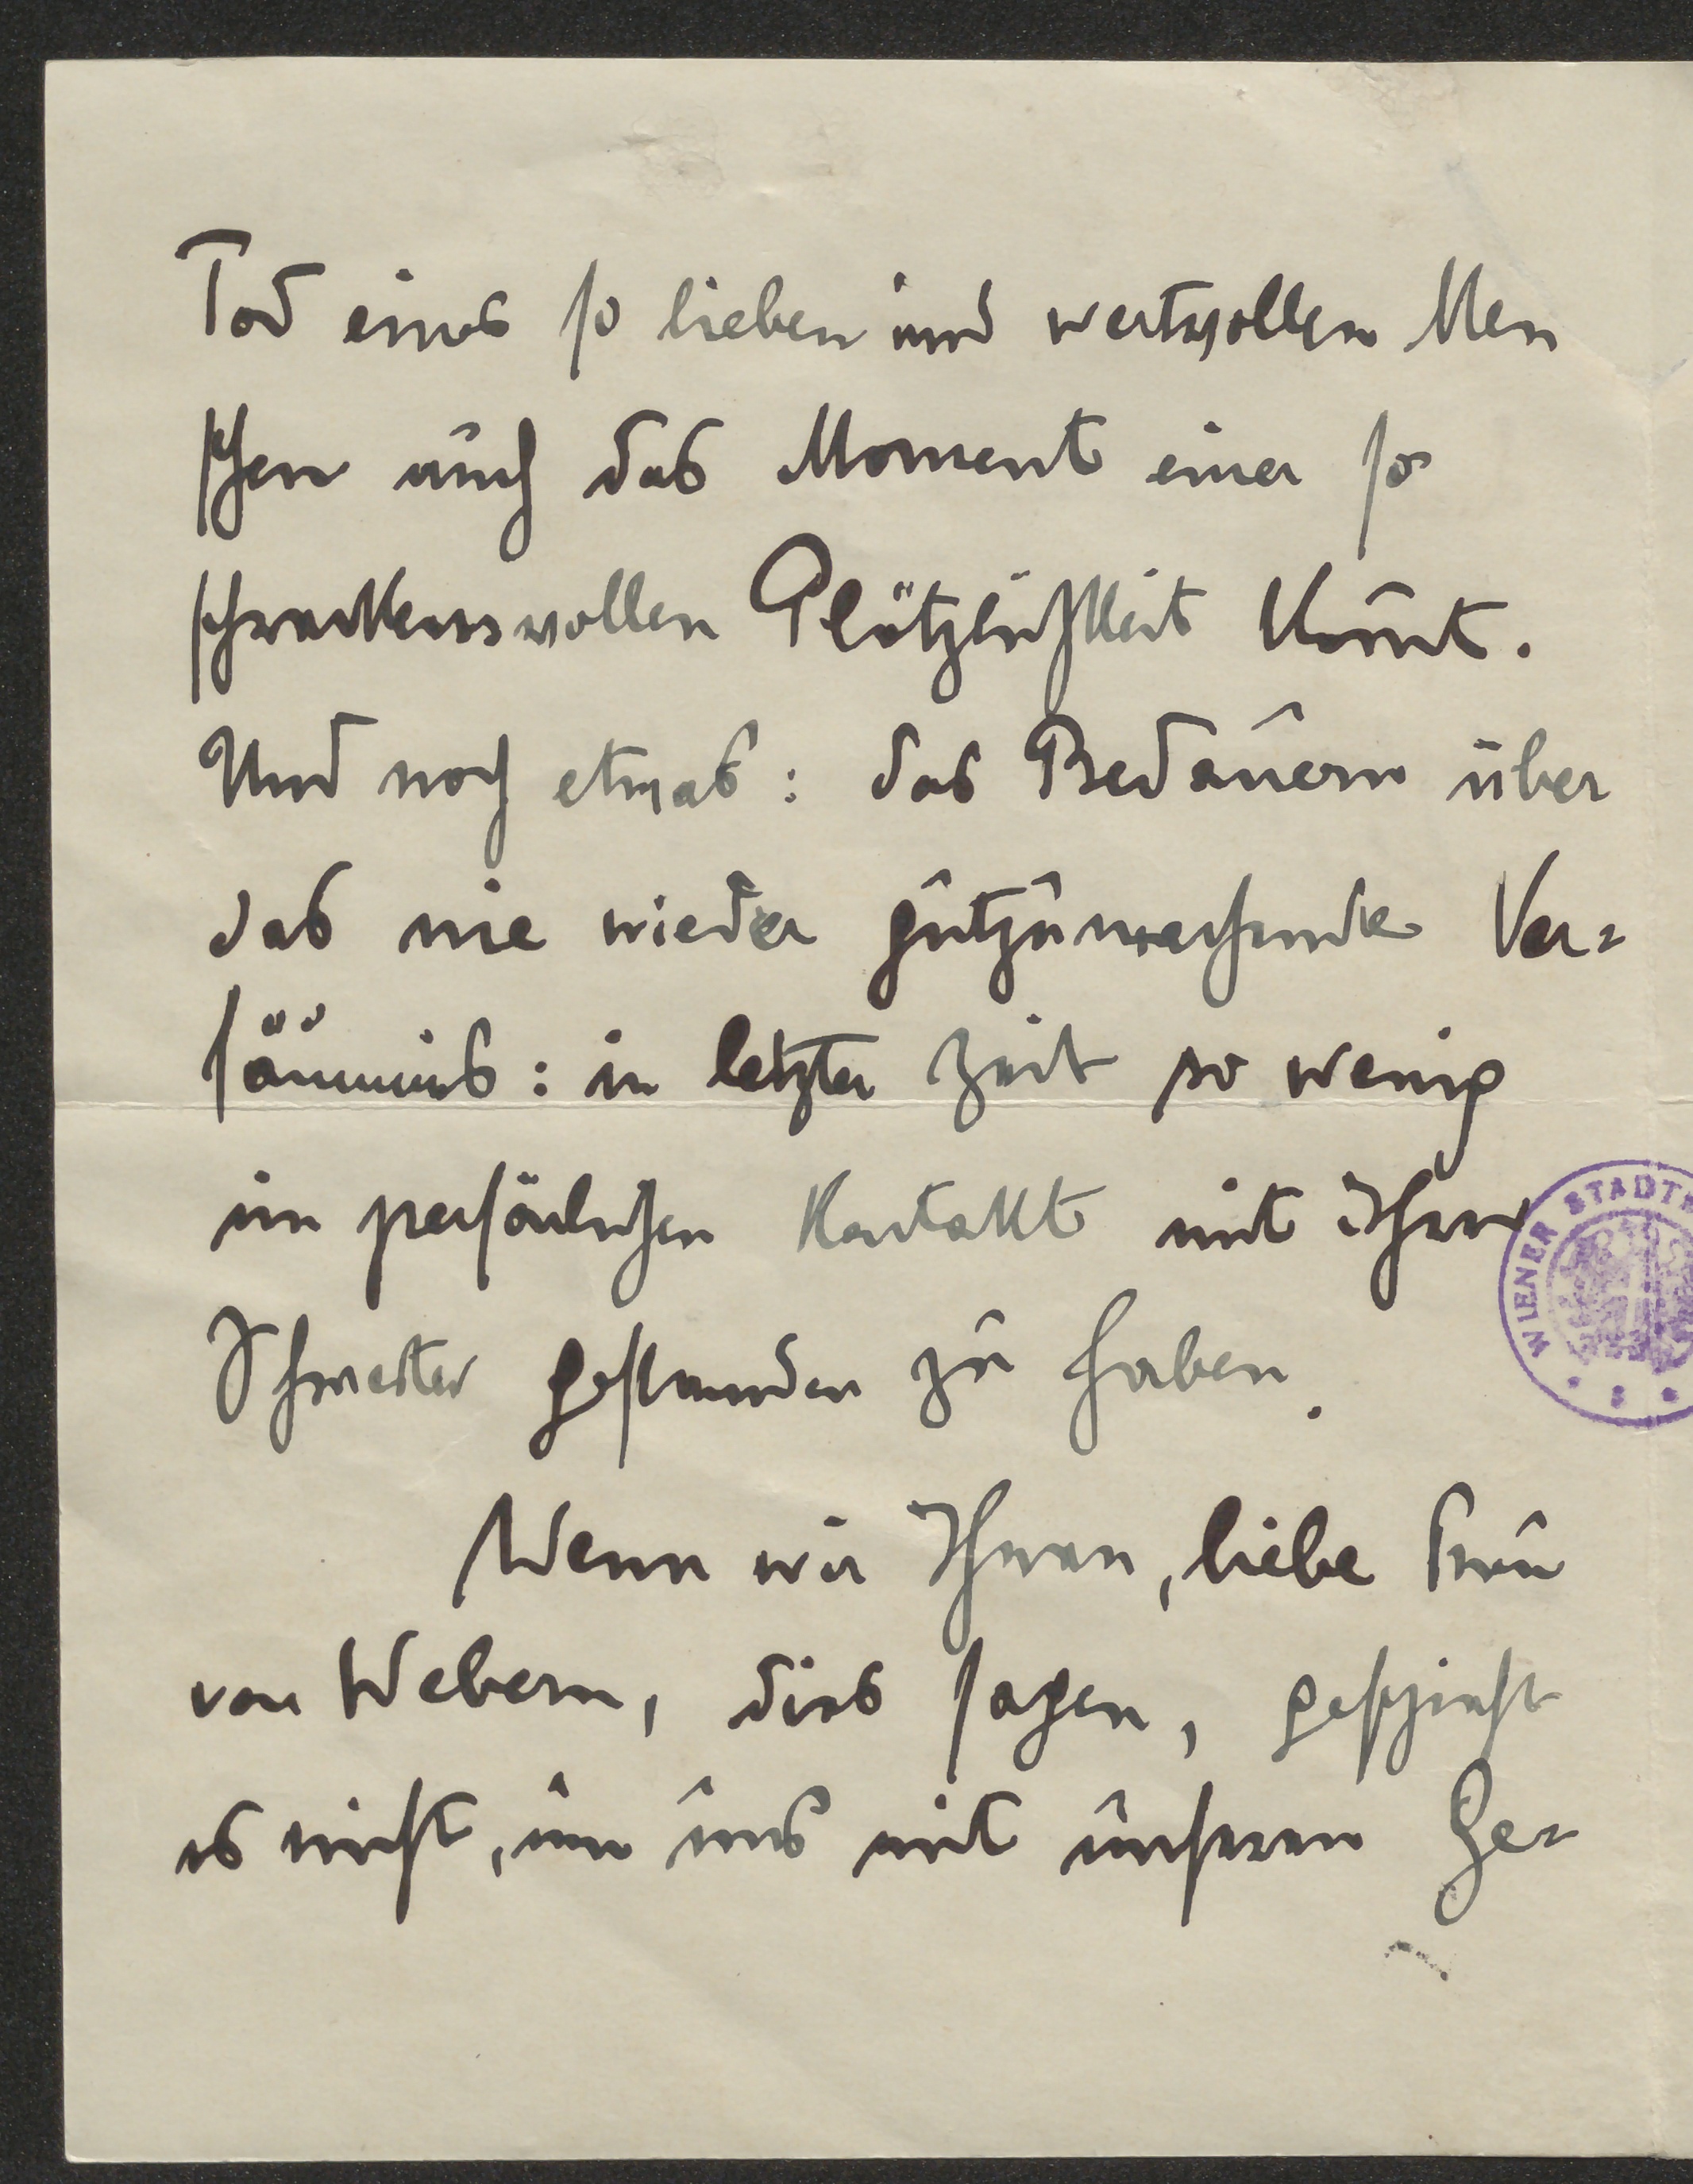 Tod eines so lieben und wertvollen Men
schen auch das Moment einer so
schreckensvollen Plötzlichkeit kom̄t.
Und noch etwas: das Bedauern über
das nie wieder gutzumachende Ver-
säumnis: in letzter Zeit so wenig
im persönlichen Kontakt mit Ihrer
Schwester gestanden zu haben.
Wenn wir Ihnen, liebe Frau
von Webern, dies sagen, geschieht
es nicht, um uns mit unseren Ge-
WIENER STADT